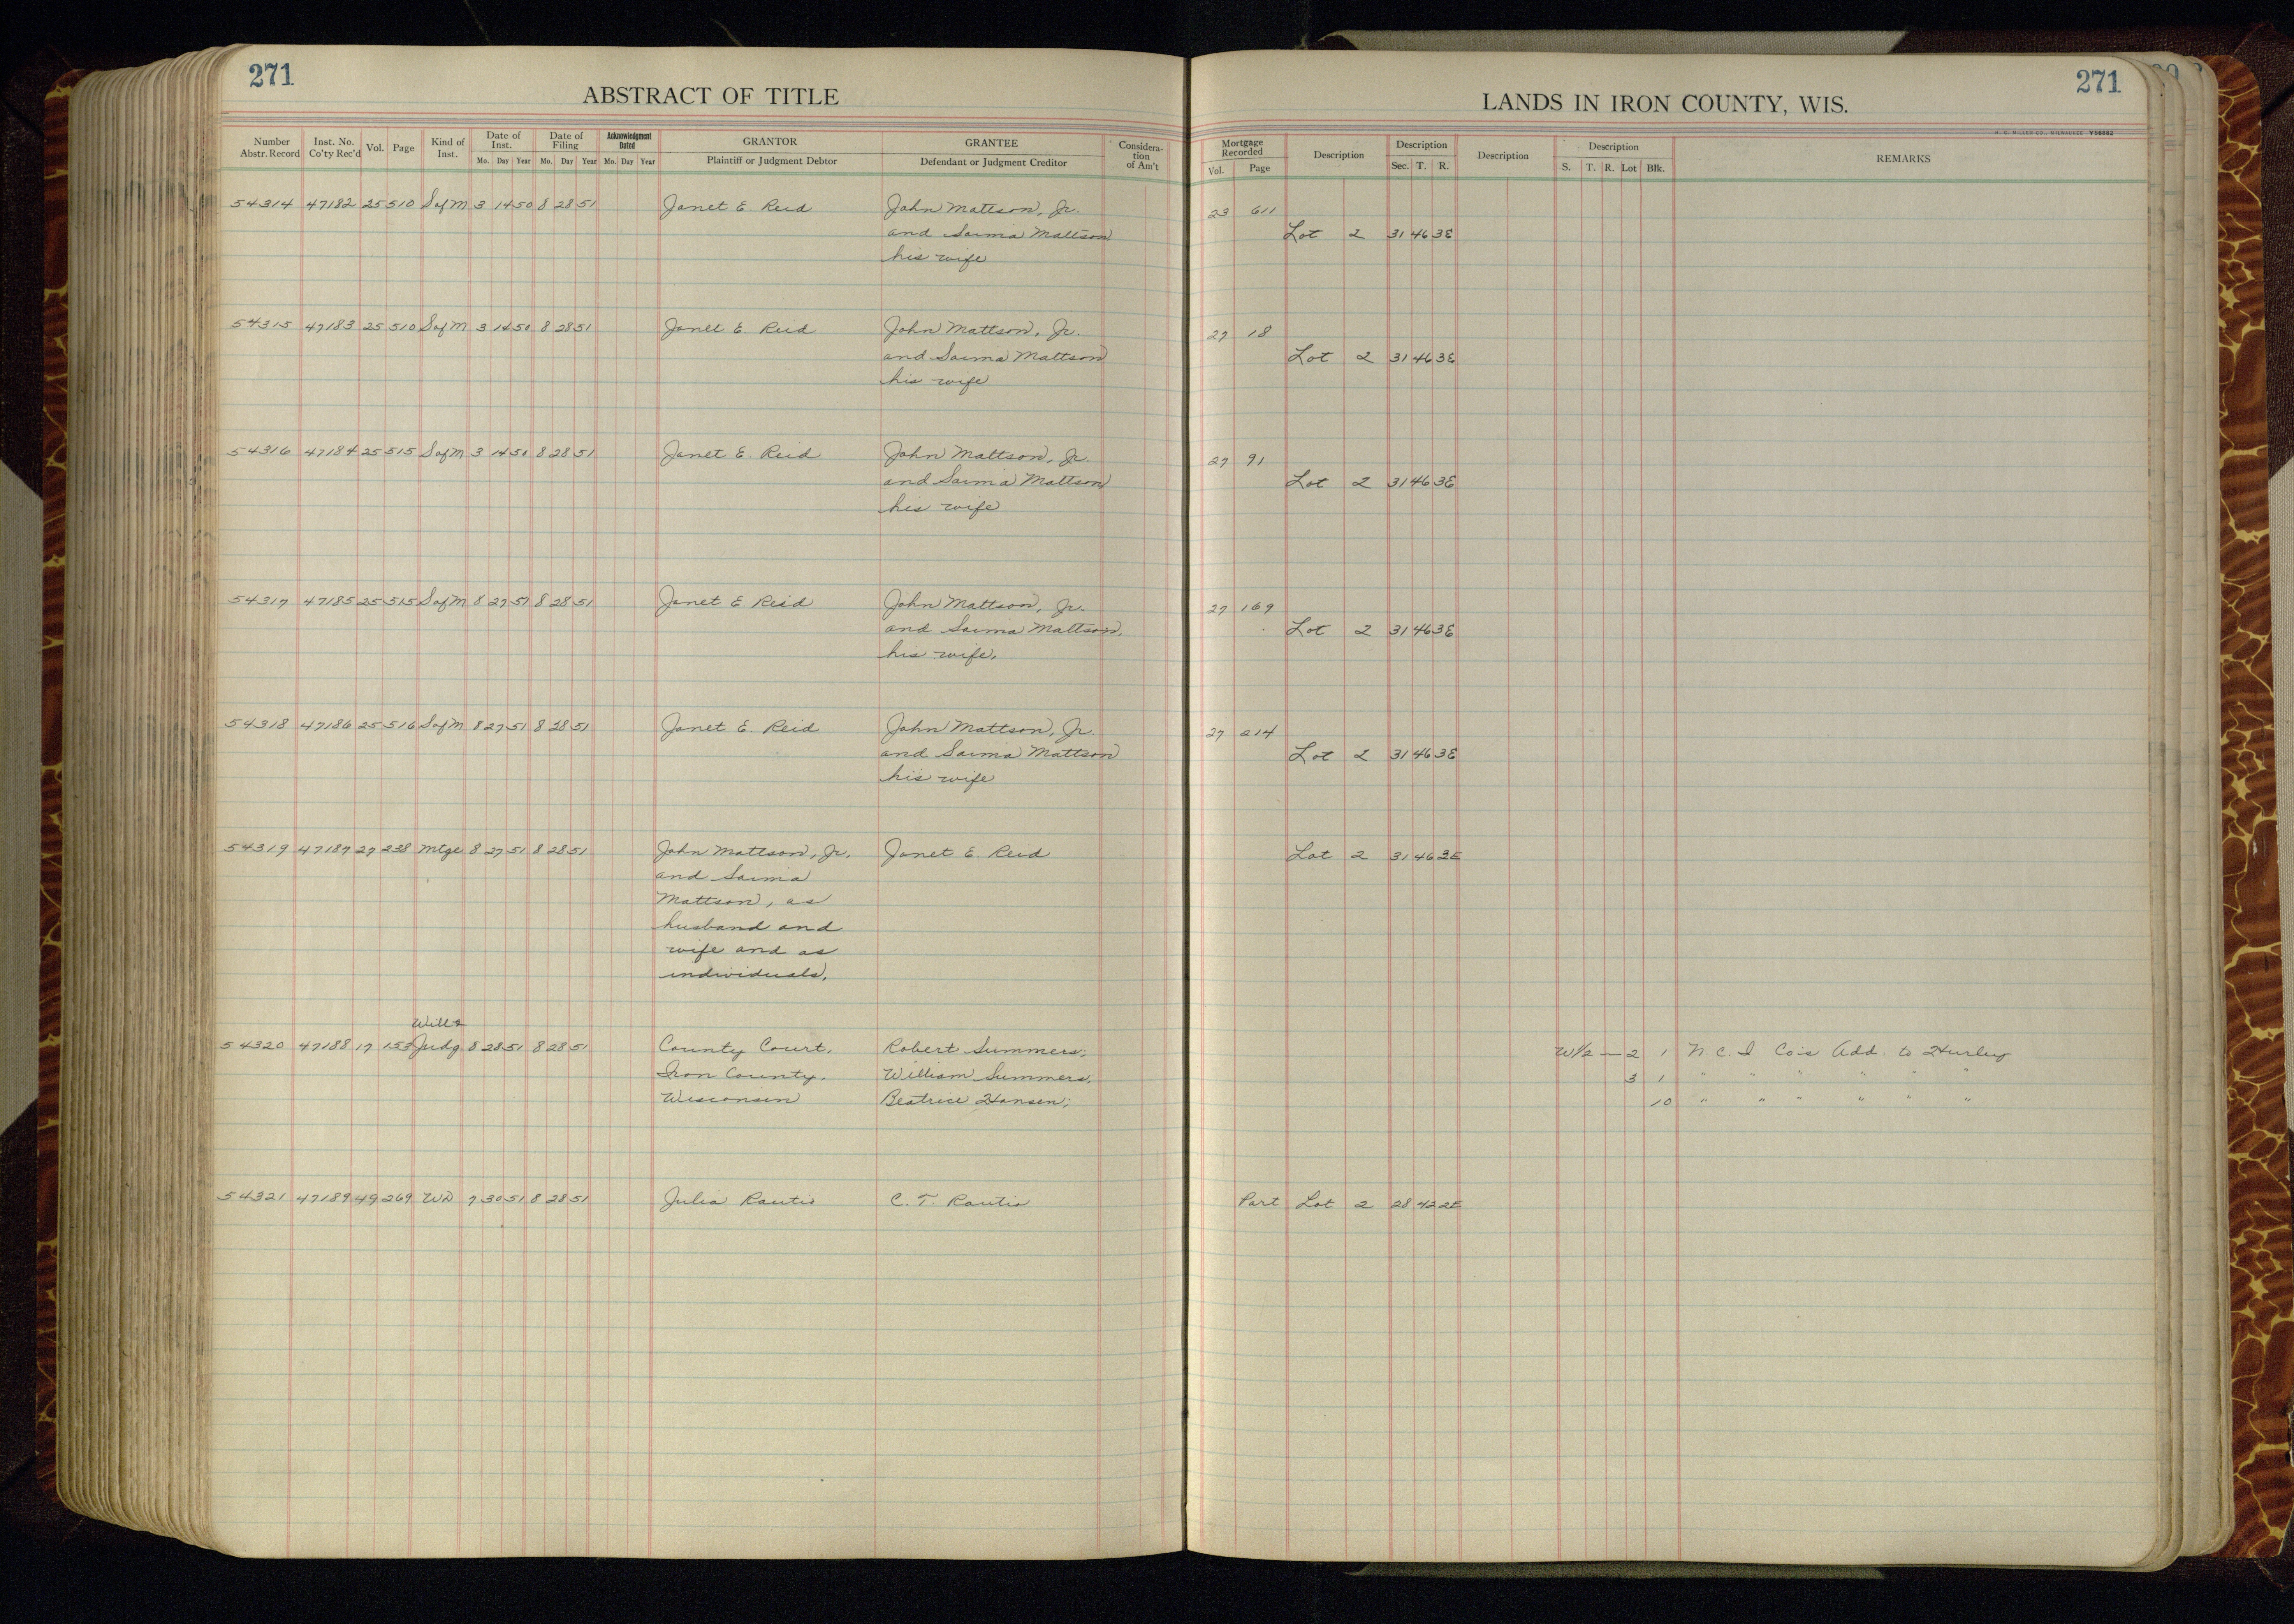 271
ABSTRACT OF TITLE
Number Abstr. Record
Inst. No. Co'ty Rec'd
Vol.
Page
Kind of Inst.
Date of Inst.
Mo. Day Year
Date of Filing
Mo. Day Year
Acknowledgment Dated
Mo. Day Year
GRANTOR
Plaintiff or Judgment Debtor
GRANTEE
Defendant or Judgment Creditor
Considera-
tion
of Am't
54314 47182 25 510 Sof M 3 14 50 8 28 51 Janet E. Reid John Mattson, Jr.
and Saima Mattson
his wife
54315 47183 25 510 Sof M 3 14 50 8 28 51 Janet E. Reid John Mattson, Jr.
and Saima Mattson
his wife
54316 47184 25 515 Sof M 3 14 50 8 28 51 Janet E. Reid John Mattson, Jr.
and Saima Mattson
his wife
54317 47185 25 515 Sof M 8 27 51 8 28 51 Janet E. Reid John Mattson, Jr.
and Saima Mattson,
his wife.
54318 47186 25 516 Sof M 8 27 51 8 28 51 Janet E. Reid John Mattson, Jr.
and Saima Mattson
his wife
54319 47187 27 238 Mtge 8 27 51 8 28 51 John Mattson, Jr. Janet E. Reid
and Saima
Mattson, as
husband and
wife and as
individuals.
Will &
54320 47188 17 153 Judg 8 28 51 8 28 51 County Court, Robert Summers;
Iron County, William Summers;
Wisconsin Beatrice Hansen;
54321 47189 49 269 WD 7 30 51 8 28 51 Julia Rautio C. T. Rautio
271
LANDS IN IRON COUNTY, WIS.
H. C. MILLER CO., MILWAUKEE Y56882
Mortgage Recorded
Vol. Page
Description
Description
Sec. T. R.
Description
Description
S. T. R. Lot Blk.
REMARKS
23 611
Lot 2 31 46 3E
27 18
Lot 2 31 46 3E
27 91
Lot 2 31 46 3E
27 169
Lot 2 31 46 3E
27 214
Lot 2 31 46 3E
Lot 2 31 46 3E
W1/2 — 2 1 N. C. I Co's Add. to Hurley
3 1 " " " " " "
10 " " " " " "
Part Lot 2 28 42 2E